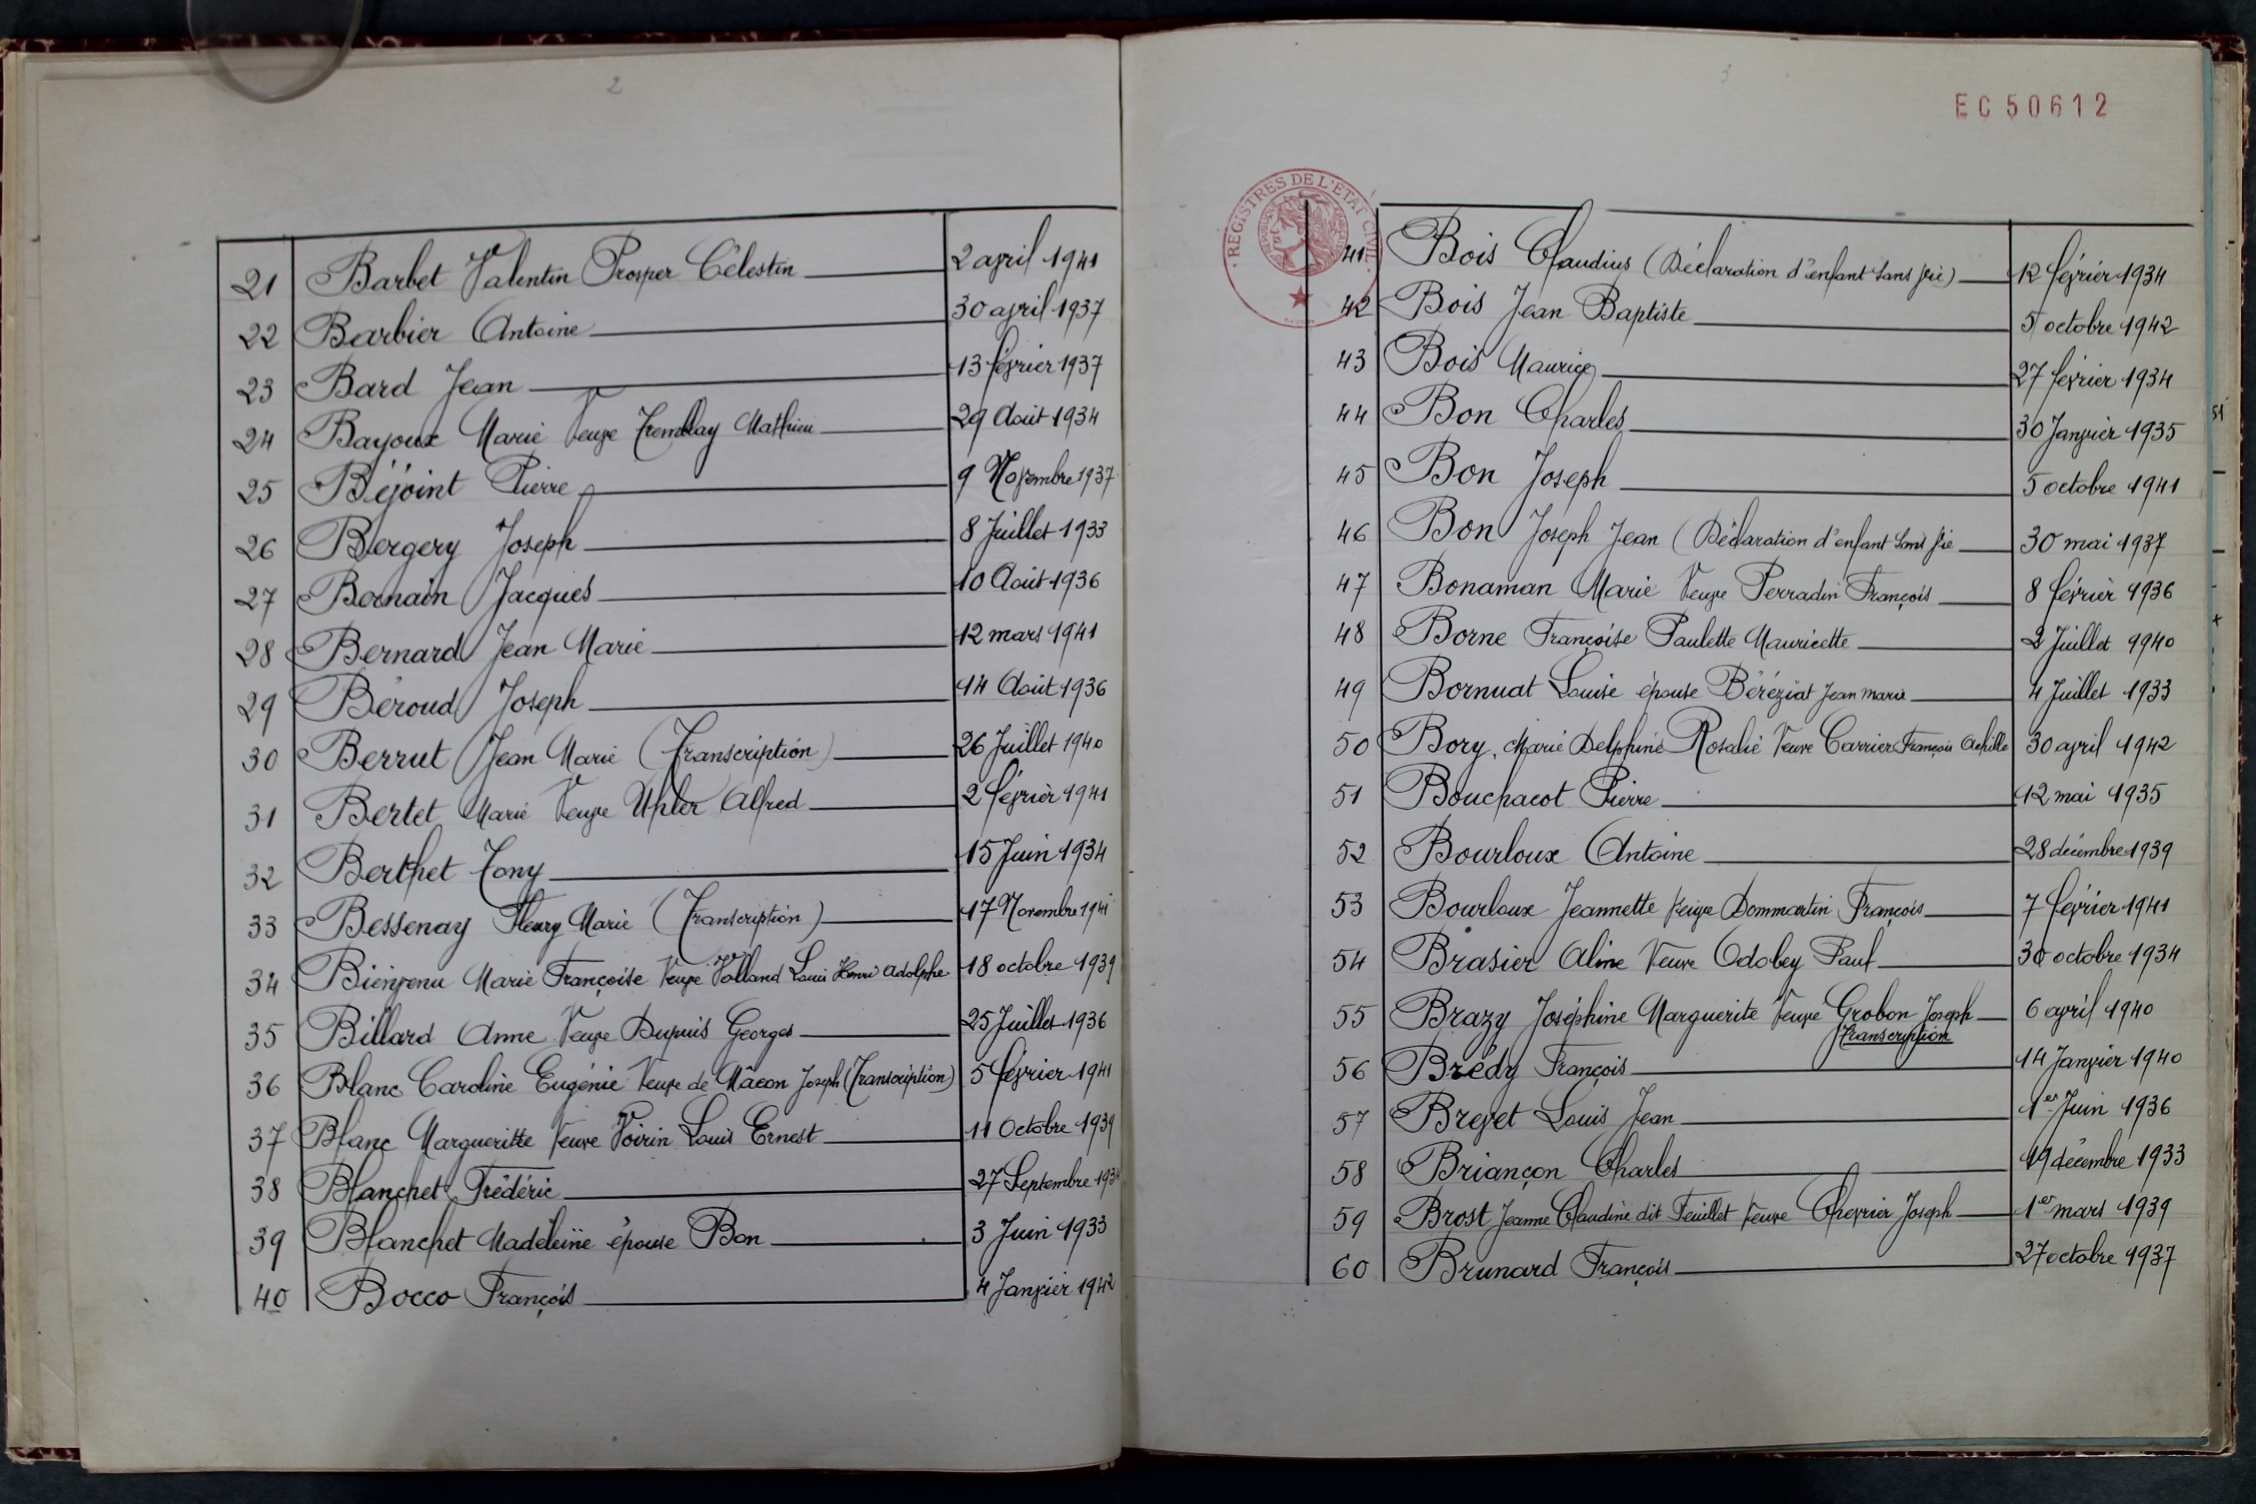 2
21 Barbet Valentin Prosper Célestin 2 avril 1941
22 Barbier Antoine 30 avril 1937
23 Bard Jean 13 février 1937
24 Bayoux Marie Veuve Tremblay Mathieu 29 Août 1934
25 Béjoint Pierre 9 Novembre 1937
26 Bergery Joseph 8 Juillet 1933
27 Bernain Jacques 10 Août 1936
28 Bernard Jean Marie 12 mars 1941
29 Béroud Joseph 14 Août 1936
30 Berrut Jean Marie (Transcription) 26 Juillet 1940
31 Bertet Marie Veuve Alfred 2 février 1941
32 Berthet Tony 15 Juin 1934
33 Bessenay Fleury Marie (Transcription) 17 Novembre 1941
34 Bienvenu Marie Françoise Veuve Volland Louis Henri Adolphe 18 octobre 1939
35 Billard Anne Veuve Dupuis Georges 25 Juillet 1936
36 Blanc Caroline Eugénie Veuve de Mâcon Joseph (Transcription) 5 février 1941
37 Blanc Margueritte Veuve Voirin Louis Ernest 11 Octobre 1939
38 Blanchet Frédéric 27 Septembre
39 Blanchet Madeleine épouse Bon 3 Juin 1933
40 Bocco François 4 Janvier 1942
3
EC50612
REGISTRES DE L'ETAT CIVIL
41 Bois Claudius (Déclaration d'enfant sans vie) 12 février 1934
42 Bois Jean Baptiste 5 octobre 1942
43 Bois Maurice 27 février 1934
44 Bon Charles 30 Janvier 1935
45 Bon Joseph 5 octobre 1941
46 Bon Joseph Jean (Déclaration d'enfant sans vie 30 mai 1937
47 Bonaman Marie Veuve Perradin François 8 février 1936
48 Borne Françoise Paulette Mauricette 2 Juillet 1940
49 Bornuat Louise épouse Béréziat Jean Marie 4 Juillet 1933
50 Bory Marie Delphine Rosalie Veuve Carrier François Achille 30 avril 1942
51 Bouchacot Pierre 12 mai 1935
52 Bourloux Antoine 28 décembre 1939
53 Bourloux Jeannette Veuve Dommartin François 7 février 1941
54 Brasier Aline Veuve Odobey Paul 30 octobre 1934
55 Brazy Joséphine Marguerite Veuve Grobon Joseph 6 avril 1940
Transcription
56 Brédy François 14 Janvier 1940
57 Brevet Louis Jean 1er Juin 1936
58 Briançon Charles 19 décembre 1933
59 Brost Jeanne Claudine dit Feuillet Veuve Chevrier Joseph 1er mars 1939
60 Brunard François 27 octobre 1937